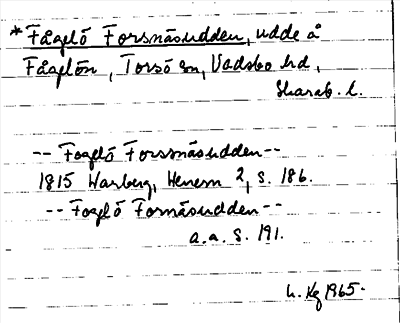 * Fågelö Forsnäsudden, udde å
Fågelön, Torsö sn, Vadsbo hd,
Skarab. l.
-- Fogelö Forssnäsudden --
1815 Warberg, Wenern 2, s. 186.
-- Fogelö Fornäsudden --
a.a. S. 191.
1965.